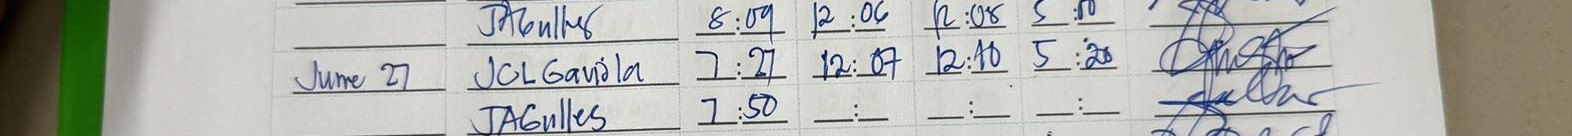 JAGulles 8:09 12:06 12:08 5:10
June 27 JCLGaviola 7:27 12:07 12:10 5:20
JAGulles 7:50 __:__ __:__ __:__